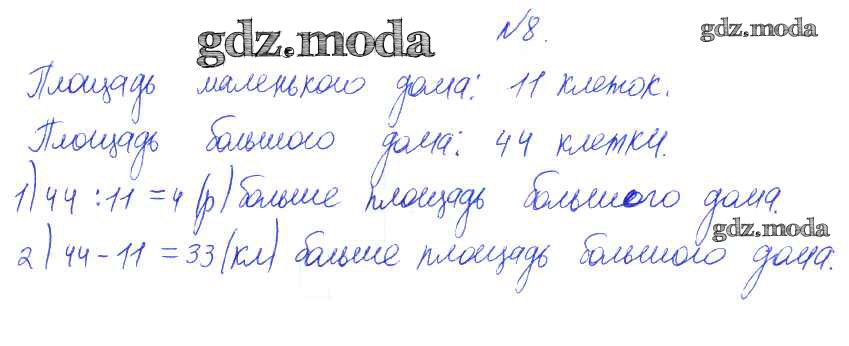 №8.
gdz.moda
gdz.moda
Площадь маленького дома: 11 клеток.
Площадь большого дома: 44 клетки.
1) 44 : 11 = 4 (р) больше площадь большого дома.
gdz.moda
2) 44 - 11 = 33 (кл) больше площадь большого дома.